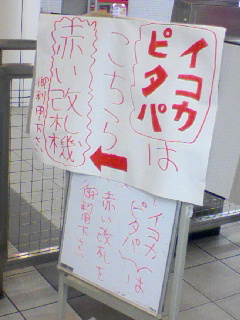 イコカ
ピタパ
は
こちら
←
赤い改札機
御利用下さい
イコカ
ピタパ
は
赤い改札を
御利用下さい